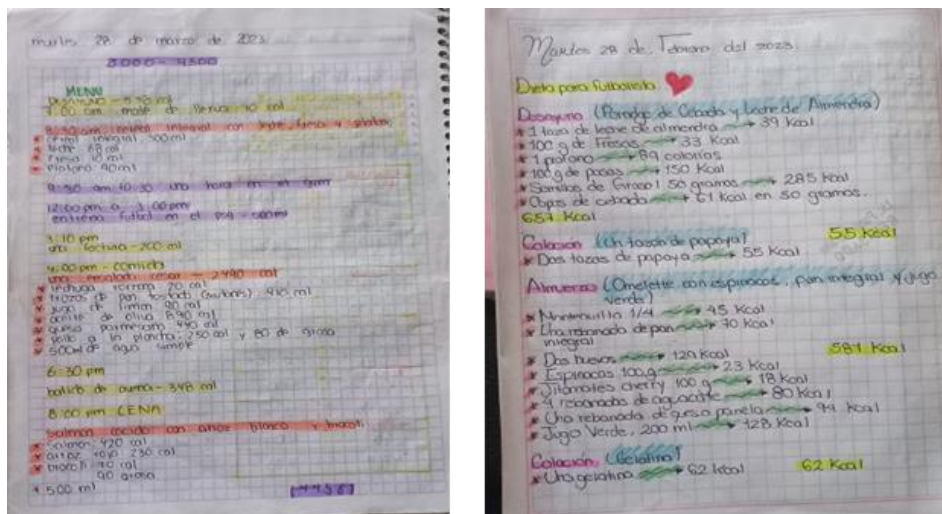 martes 28 de marzo de 2023
3000 - 4500
MENU
DESAYUNO - 530 cal
7:00 am mate de 10 cal
8:30 am cereal integral con leche, fresa y platano
cereal integral 300 cal
leche 68 cal
fresa 10 cal
platano 90 cal
9:30 am 10:30 una hora en el gym
12:00 pm a 3:00 pm
entrena futbol en el PSG - 500 ml
3:10 pm
una 200 ml
4:00 pm - comida
una ensalada cesar - 2490 cal
lechuga romana 20 cal
trozos de pan tostado 410 cal
jugo de limon 20 cal
aceite de oliva 890 cal
queso parmesano 440 cal
pollo a la plancha 250 cal y 80 de grasa
500 ml de agua simple
6:30 pm
batido de avena - 348 cal
8:00 pm CENA
Salmon cocido con arroz blanco y brocoli
Salmon 420 cal
arroz 230 cal
brocoli 40 cal
90 grasa
500 ml
Martes 28 de Febrero del 2023.
Dieta para futbolista
Desayuno (Porridge de Cebada y Leche de Almendra)
* 1 taza de leche de almendra 39 Kcal
* 100 g de Fresas 33 Kcal
* 1 platano 89 calorias
* 100 g de pasas 150 Kcal
* Semillas de Girasol 50 gramos 285 Kcal
* Copos de cebada 61 Kcal en 50 gramos.
657 Kcal
Colación (Un tazón de papaya) 55 Kcal
* Dos tazas de papaya 55 Kcal
Almuerzo (Omelette con espinacas, pan integral y jugo
verde)
* Mantequilla 1/4 45 Kcal
* Una rebanada de pan 70 Kcal
integral
* Dos huevos 129 Kcal 587 Kcal
* Espinacas 100 g 23 Kcal
* Jitomates cherry 100 g 18 Kcal
* 4 rebanadas de aguacate 80 Kcal
* Una rebanada de queso panela 94 Kcal
* Jugo Verde, 200 ml 128 Kcal
Colación (Gelatina)
* Una gelatina 62 kcal 62 Kcal